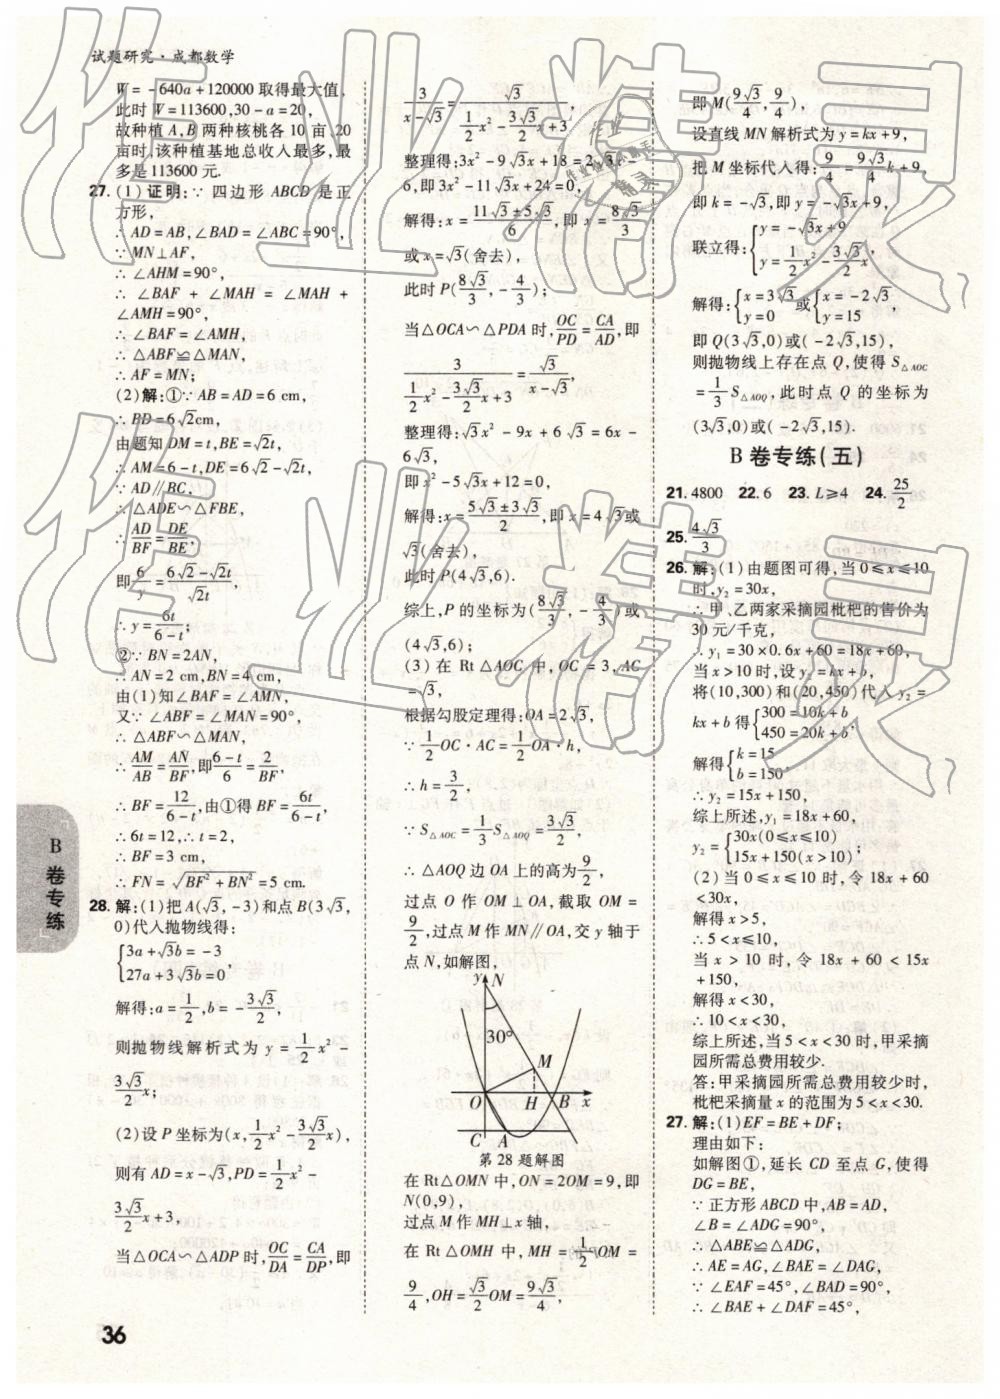 试题研究·成都数学
W = -640a + 120000 取得最大值.
此时 W = 113600, 30 - a = 20,
故种植 A, B 两种核桃各 10 亩、20
亩时,该种植基地总收入最多,最
多是 113600 元.
27. (1) 证明:∵ 四边形 ABCD 是正
方形,
∴ AD = AB, ∠BAD = ∠ABC = 90°,
∵ MN⊥AF,
∴ ∠AHM = 90°,
∴ ∠BAF + ∠MAH = ∠MAH +
∠AMH = 90°,
∴ ∠BAF = ∠AMH,
∴ △ABF≌△MAN,
∴ AF = MN;
(2)解:①∵ AB = AD = 6 cm,
∴ BD = 6√2cm,
由题知 DM = t, BE = √2t,
∴ AM = 6 - t, DE = 6√2 - √2t,
∵ AD∥BC,
∴ △ADE∽△FBE,
∴ AD/BF = DE/BE,
即 6/y = (6√2 - √2t)/(√2t),
∴ y = 6t/(6 - t);
②∵ BN = 2AN,
∴ AN = 2 cm, BN = 4 cm,
由(1)知∠BAF = ∠AMN,
又∵ ∠ABF = ∠MAN = 90°,
∴ △ABF∽△MAN,
∴ AM/AB = AN/BF, 即 (6 - t)/6 = 2/BF,
∴ BF = 12/(6 - t), 由①得 BF = 6t/(6 - t),
∴ 6t = 12, ∴ t = 2,
∴ BF = 3 cm,
∴ FN = √(BF² + BN²) = 5 cm.
28. 解:(1)把 A(√3, -3)和点 B(3√3,
0)代入抛物线得:
{3a + √3b = -3
27a + 3√3b = 0,
解得:a = 1/2, b = -3√3/2,
则抛物线解析式为 y = 1/2 x² -
3√3/2 x;
(2)设 P 坐标为(x, 1/2 x² - 3√3/2 x),
则有 AD = x - √3, PD = 1/2 x² -
3√3/2 x + 3,
当△OCA∽△ADP 时, OC/DA = CA/DP, 即
3/(x - √3) = √3/(1/2 x² - 3√3/2 x + 3),
整理得:3x² - 9√3x + 18 = 2√3x -
6, 即 3x² - 11√3x + 24 = 0,
解得:x = (11√3 ± 5√3)/6, 即 x = 8√3/3
或 x = √3(舍去),
此时 P(8√3/3, -4/3);
当△OCA∽△PDA 时, OC/PD = CA/AD, 即
3/(1/2 x² - 3√3/2 x + 3) = √3/(x - √3),
整理得:√3x² - 9x + 6√3 = 6x -
6√3,
即 x² - 5√3x + 12 = 0,
解得:x = (5√3 ± 3√3)/2, 即 x = 4√3或
√3(舍去),
此时 P(4√3, 6).
综上, P 的坐标为(8√3/3, -4/3)或
(4√3, 6);
(3) 在 Rt△AOC 中, OC = 3, AC
= √3,
根据勾股定理得:OA = 2√3,
∵ 1/2 OC·AC = 1/2 OA·h,
∴ h = 3/2,
∵ S△AOC = 1/3 S△AOQ = 3√3/2,
∴ △AOQ 边 OA 上的高为 9/2,
过点 O 作 OM⊥OA, 截取 OM =
9/2, 过点 M 作 MN∥OA, 交 y 轴于
点 N, 如解图,
y N
30°
M
O H B x
C A
第 28 题解图
在 Rt△OMN 中, ON = 2OM = 9, 即
N(0, 9),
过点 M 作 MH⊥x 轴,
在 Rt△OMH 中, MH = 1/2 OM =
9/4, OH = √3/2 OM = 9√3/4,
即 M(9√3/4, 9/4),
设直线 MN 解析式为 y = kx + 9,
把 M 坐标代入得:9/4 = 9√3/4 k + 9,
即 k = -√3, 即 y = -√3x + 9,
联立得:{y = -√3x + 9
y = 1/2 x² - 3√3/2 x,
解得:{x = 3√3 y = 0 或{x = -2√3 y = 15,
即 Q(3√3, 0)或(-2√3, 15),
则抛物线上存在点 Q, 使得 S△AOC
= 1/3 S△AOQ, 此时点 Q 的坐标为
(3√3, 0)或(-2√3, 15).
B 卷专练(五)
21. 4800 22. 6 23. L≥4 24. 25/2
25. 4√3/3
26. 解:(1)由题图可得, 当 0≤x≤10
时, y₂ = 30x,
∴ 甲、乙两家采摘园枇杷的售价为
30 元/千克,
∴ y₁ = 30×0.6x + 60 = 18x + 60,
当 x > 10 时, 设 y₂ = kx + b,
将(10, 300)和(20, 450)代入 y₂ =
kx + b 得{300 = 10k + b
450 = 20k + b,
解得{k = 15
b = 150,
∴ y₂ = 15x + 150,
综上所述, y₁ = 18x + 60,
y₂ = {30x(0≤x≤10)
15x + 150(x > 10);
(2) 当 0≤x≤10 时, 令 18x + 60
< 30x,
解得 x > 5,
∴ 5 < x≤10,
当 x > 10 时, 令 18x + 60 < 15x
+ 150,
解得 x < 30,
∴ 10 < x < 30,
综上所述, 当 5 < x < 30 时, 甲采摘
园所需总费用较少.
答:甲采摘园所需总费用较少时,
枇杷采摘量 x 的范围为 5 < x < 30.
27. 解:(1)EF = BE + DF;
理由如下:
如解图①, 延长 CD 至点 G, 使得
DG = BE,
∵ 正方形 ABCD 中, AB = AD,
∠B = ∠ADG = 90°,
∴ △ABE≌△ADG,
∴ AE = AG, ∠BAE = ∠DAG,
∵ ∠EAF = 45°, ∠BAD = 90°,
∴ ∠BAE + ∠DAF = 45°,
B 卷专练
36
作业精灵
作业精灵